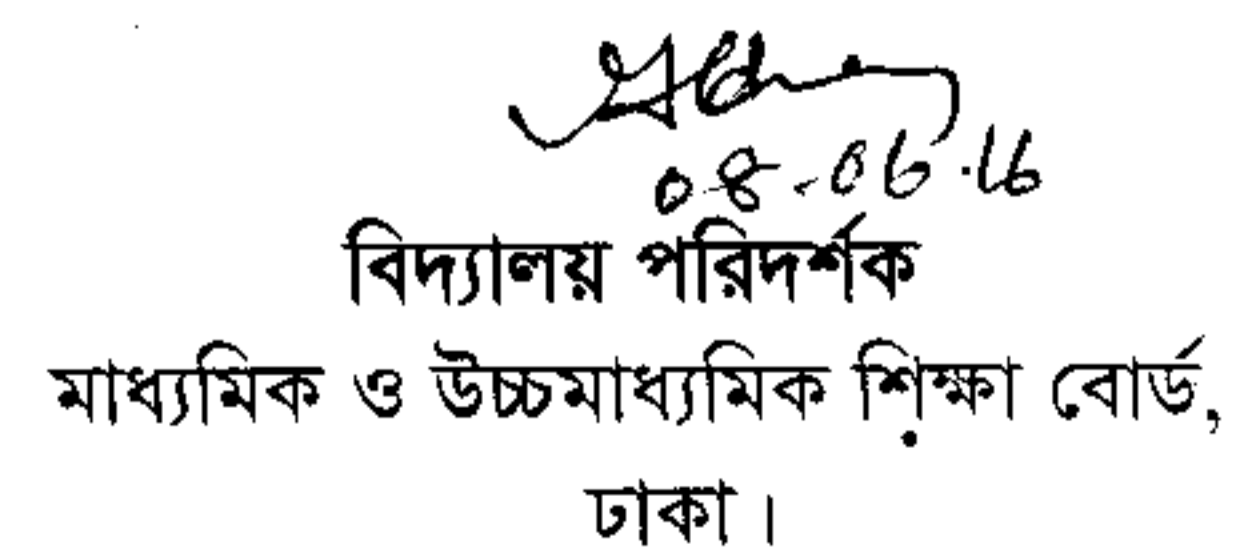 08-06.16
বিদ্যালয় পরিদর্শক
মাধ্যমিক ও উচ্চমাধ্যমিক শিক্ষা বোর্ড,
ঢাকা।